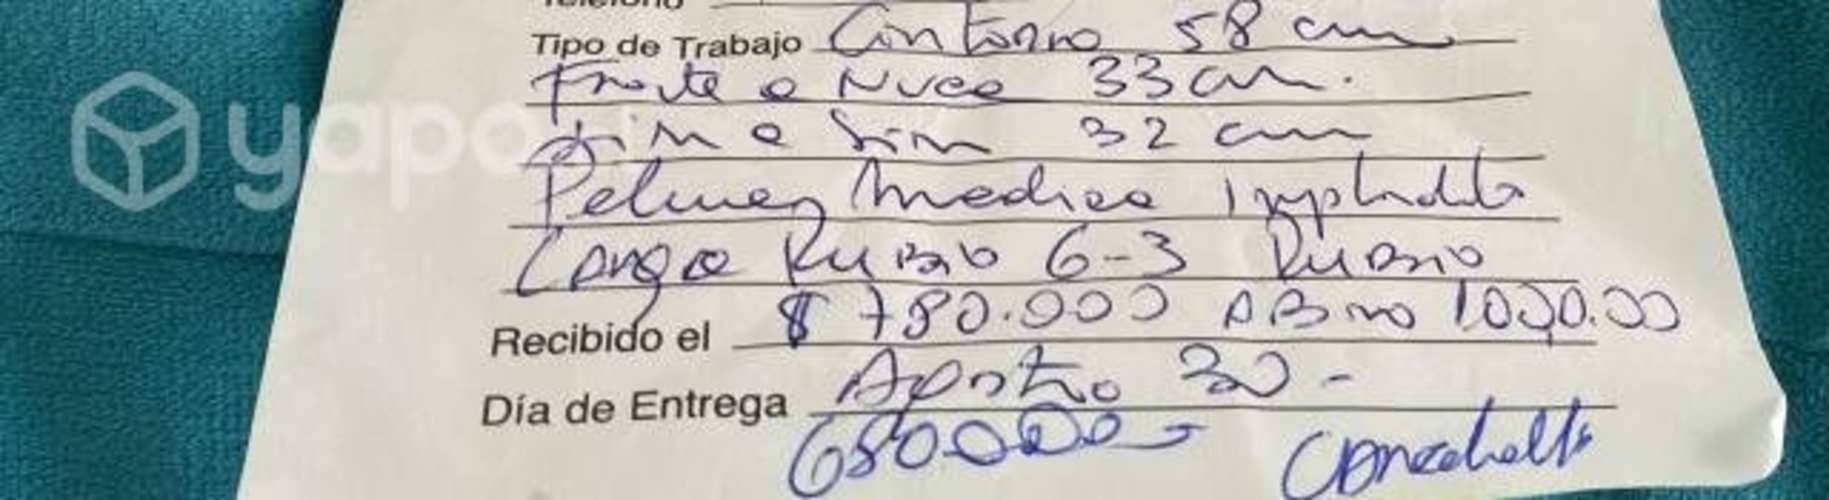 Teléfono
Tipo de Trabajo Contorno 58 cm
Frente a Nuca 33 cm.
Sin a Sin 32 cm
yapo
Peluca Medica Implantada
Larga Rubio 6-3 Rubio
Recibido el $ 780.000 ABono 100.000
Día de Entrega Agosto 30-
680.000-